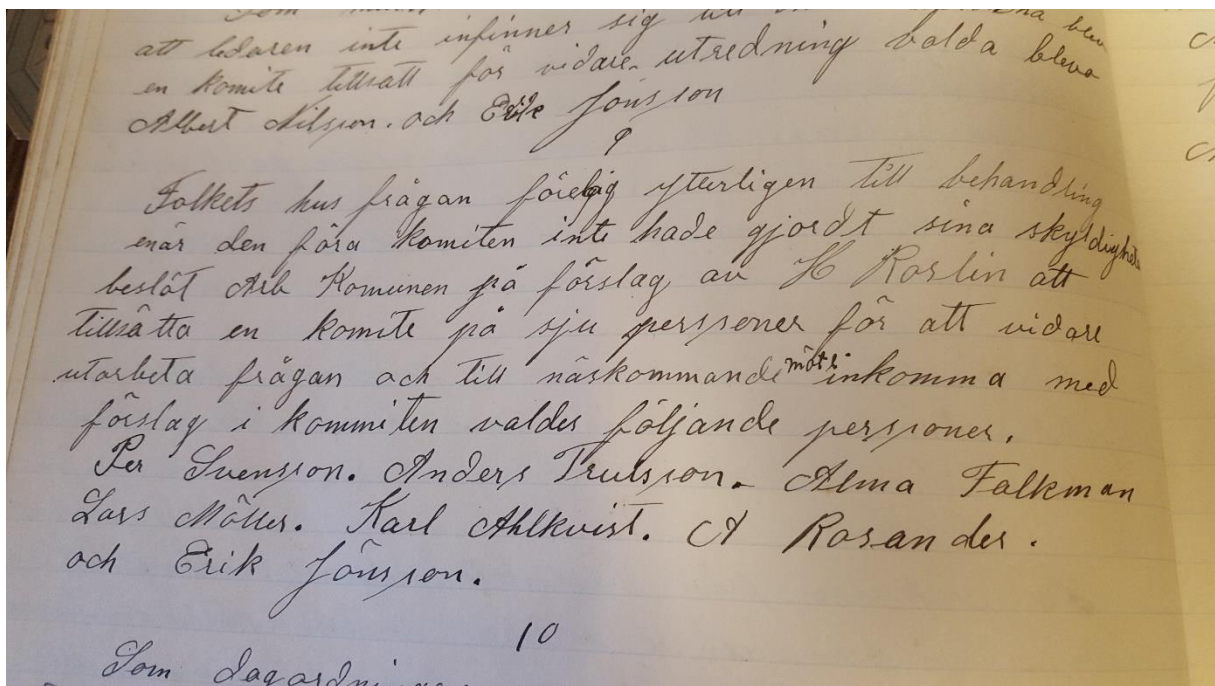 Som
att ledaren inte infinner sig till blev
en komite tillsatt för vidare utredning valda bleva
Albert Nilsson. och Erik Jönsson
9
Folkets hus frågan förelåg ytterligen till behandling
enär den föra komiten inte hade gjordt sina skyldigheter
beslöt Arb Komunen på förslag av H Roslin att
tillsätta en komite på sju perssoner för att vidare
utarbeta frågan och till näskommande möte inkomma med
förslag i kommiten valdes följande perssoner.
Per Svensson. Anders Trulsson. Alma Falkman
Lars Möller. Karl Ahlkvist. A Rosander.
och Erik Jönsson.
10
Som dagordningen